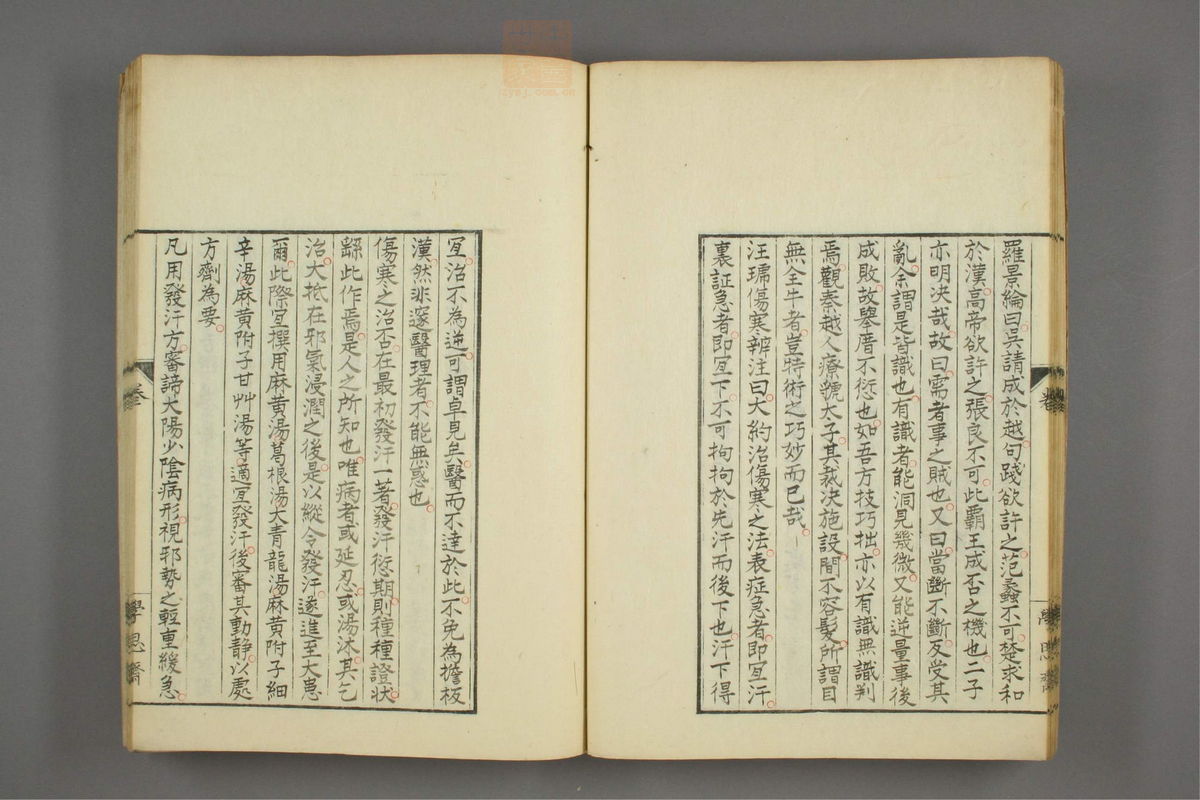 羅景綸曰吳請成於越句踐欲許之范蠡不可楚求和
於漢高帝欲許之張良不可此霸王成否之機也二子
亦明决哉故曰需者事之賊也又曰當斷不斷反受其
亂余謂是皆識也有識者能洞見幾微又能逆量事後
成敗故舉厝不愆也如吾方技巧拙亦以有識無識判
焉觀秦越人療虢太子其裁决施設間不容髮所謂目
無全牛者豈特術之巧妙而已哉
汪琥傷寒辨注曰大約治傷寒之法表症急者即宜汗
裏証急者即宜下不可拘拘於先汗而後下也汗下得
宜治不為逆可謂卓見矣醫而不達於此不免為擔板
漢然非邃醫理者不能無惑也
傷寒之治否在最初發汗一著發汗愆期則種種證狀
繇此作焉是人之所知也唯病者或延忍或湯沐其乞
治大抵在邪氣浸潤之後是以縱令發汗遂進至大患
爾此際宜撰用麻黄湯葛根湯大青龍湯麻黄附子細
辛湯麻黄附子甘艸湯等適宜發汗後審其動静以處
方劑為要
凡用發汗方審諦大陽少陰病形視邪勢之輕重緩急
卷
學思齋